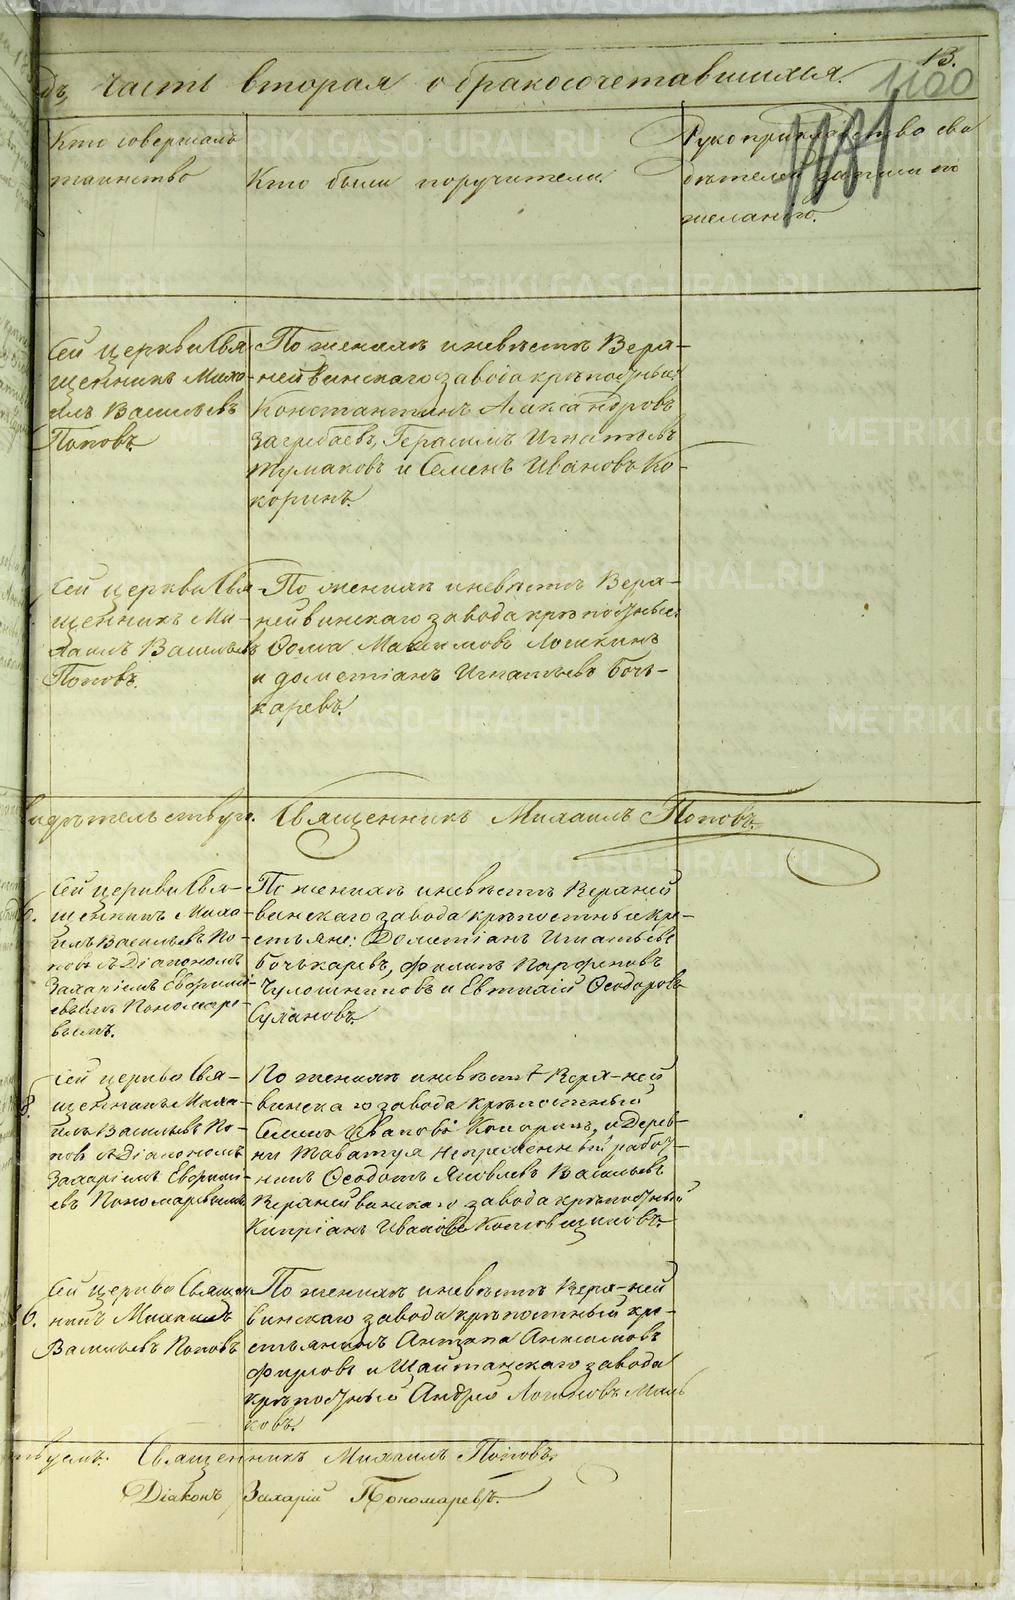 13.
дъ, часть вторая о бракосочетавшихся.
1100
1181
Кто совершалъ
таинство
Кто были поручители.
Рукоприкладство сви
дѣтелей записи по
желанію.
Сей церкви Свя
щенникъ Миха
илъ Васильевъ
Поповъ.
По женихѣ и невѣстѣ Верх–
нейвинскаго завода крѣпостные:
Константинъ Александровъ
Загребаевъ, Герасимъ Игнатьевъ
Тумаковъ и Семенъ Ивановъ Ко–
коринъ.
Сей церкви Свя
щенникъ Ми–
хаилъ Васильевъ
Поповъ.
По женихѣ и невѣстѣ Верх–
нейвинскаго завода крѣпостные:
Ѳома Максимовъ Лошкинъ
и Дометіанъ Игнатьевъ Боч–
каревъ.
видѣтельствую. Священникъ Михаилъ Поповъ.
6.
Сей церкви Свя–
щенникъ Миха–
илъ Васильевъ По–
повъ съ Діакономъ
Захаріемъ Евфимі–
евымъ Пономаре–
вымъ.
По женихѣ и невѣстѣ Верхней
винскаго завода крѣпостные кре–
стьяне: Дометіанъ Игнатьевъ
Бочькаревъ, Филипъ Парфеновъ
Чулошниковъ и Евтихій Ѳеодоровъ
Сухановъ.
8.
Сей церкви Свя–
щенникъ Миха–
илъ Васильевъ По–
повъ съ Діакономъ
Захаріемъ Евфимі–
евъ Пономаревымъ
По женихѣ и невѣстѣ Верх–ней
винскаго завода крѣпостный
Семенъ Ивановъ Кокоринъ, и Дерев–
ни Таватуя Непременный работ–
никъ Ѳеодотъ Яковлевъ Васильевъ
Верхнейвинскаго завода крѣпостный
Кипріанъ Ивановъ Коловщиковъ.
86.
Сей церкви Священ
никъ Михаилъ
Васильевъ Поповъ
По женихѣ и невѣстѣ Верх–ней
винскаго завода крѣпостный кре–
стьянинъ Антипа Анисимовъ
Фирсовъ и Шайтанскаго завода
крѣпостный Андрей Логиновъ Маль
ковъ.
твуемъ: Священникъ Михаилъ Поповъ.
Діаконъ Захарій Пономаревъ.
METRIKI.GASO-URAL.RU